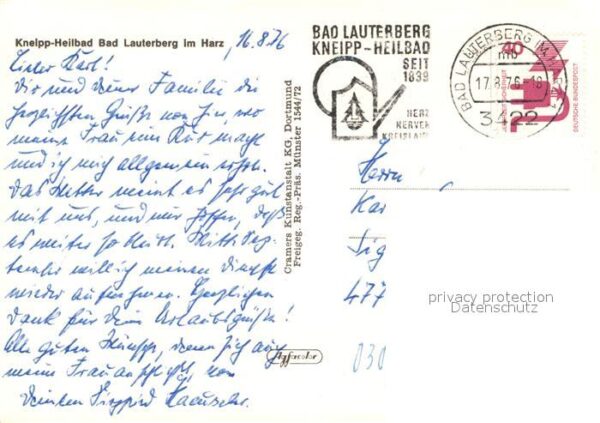 Kneipp-Heilbad Bad Lauterberg im Harz
16.8.76
Lieber Karl!
Dir und Deiner Familie die
herzlichsten Grüße von hier, wo
meine Frau eine Kur macht
und ich mich allgemein erhole.
Das Wetter meint es sehr gut
mit uns, und wir hoffen, daß
es weiter so bleibt. Mitte Sep-
tember will ich meinen Dienst
wieder aufnehmen. Herzlichen
Dank für Deine Urlaubsgrüße!
Alle guten Wünsche, denen sich auch
meine Frau anschließt, von
Siegfried
Cramers Kunstanstalt KG, Dortmund
Freigeg. Reg.-Präs. Münster 1544/72
Agfacolor
BAD LAUTERBERG
KNEIPP-HEILBAD
SEIT
1839
HERZ
NERVEN
KREISLAUF
BAD LAUTERBERG IM
mb
17.8.76-18
3422
40
DEUTSCHE BUNDESPOST
Herrn
Kar
Sig
477
030
privacy protection
Datenschutz